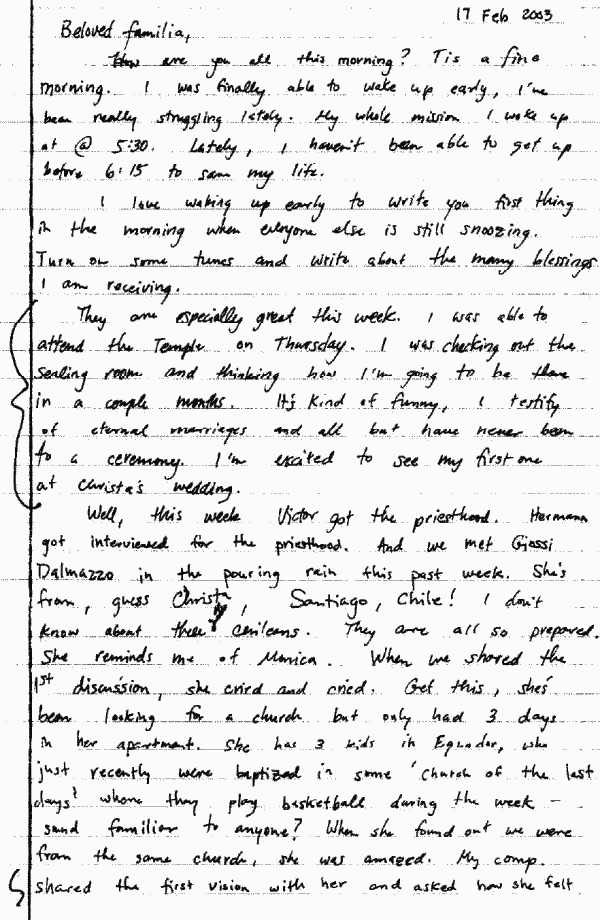 17 Feb 2003
Beloved familia,
How are you all this morning? Tis a fine
morning. I was finally able to wake up early, I've
been really struggling lately. My whole mission I woke up
at @ 5:30. Lately, I haven't been able to get up
before 6:15 to save my life.
I love waking up early to write you first thing
in the morning when everyone else is still snoozing.
Turn on some tunes and write about the many blessings
I am receiving.
They are especially great this week. I was able to
attend the Temple on Thursday. I was checking out the
sealing room and thinking how I'm going to be there
in a couple months. It's kind of funny, I testify
of eternal marriages and all but have never been
to a ceremony. I'm excited to see my first one
at Christa's wedding.
Well, this week Victor got the priesthood. Hermann
got interviewed for the priesthood. And we met Giossi
Dalmazzo in the pouring rain this past week. She's
from, guess Christy, Santiago, Chile! I don't
know about these Chileans. They are all so prepared.
She reminds me of Monica. When we shared the
1st discussion, she cried and cried. Get this, she's
been looking for a church but only had 3 days
in her apartment. She has 3 kids in Equador, who
just recently were baptized in some 'church of the last
days' whom they play basketball during the week -
sound familiar to anyone? When she found out we were
from the same church, she was amazed. My comp.
shared the first vision with her and asked how she felt